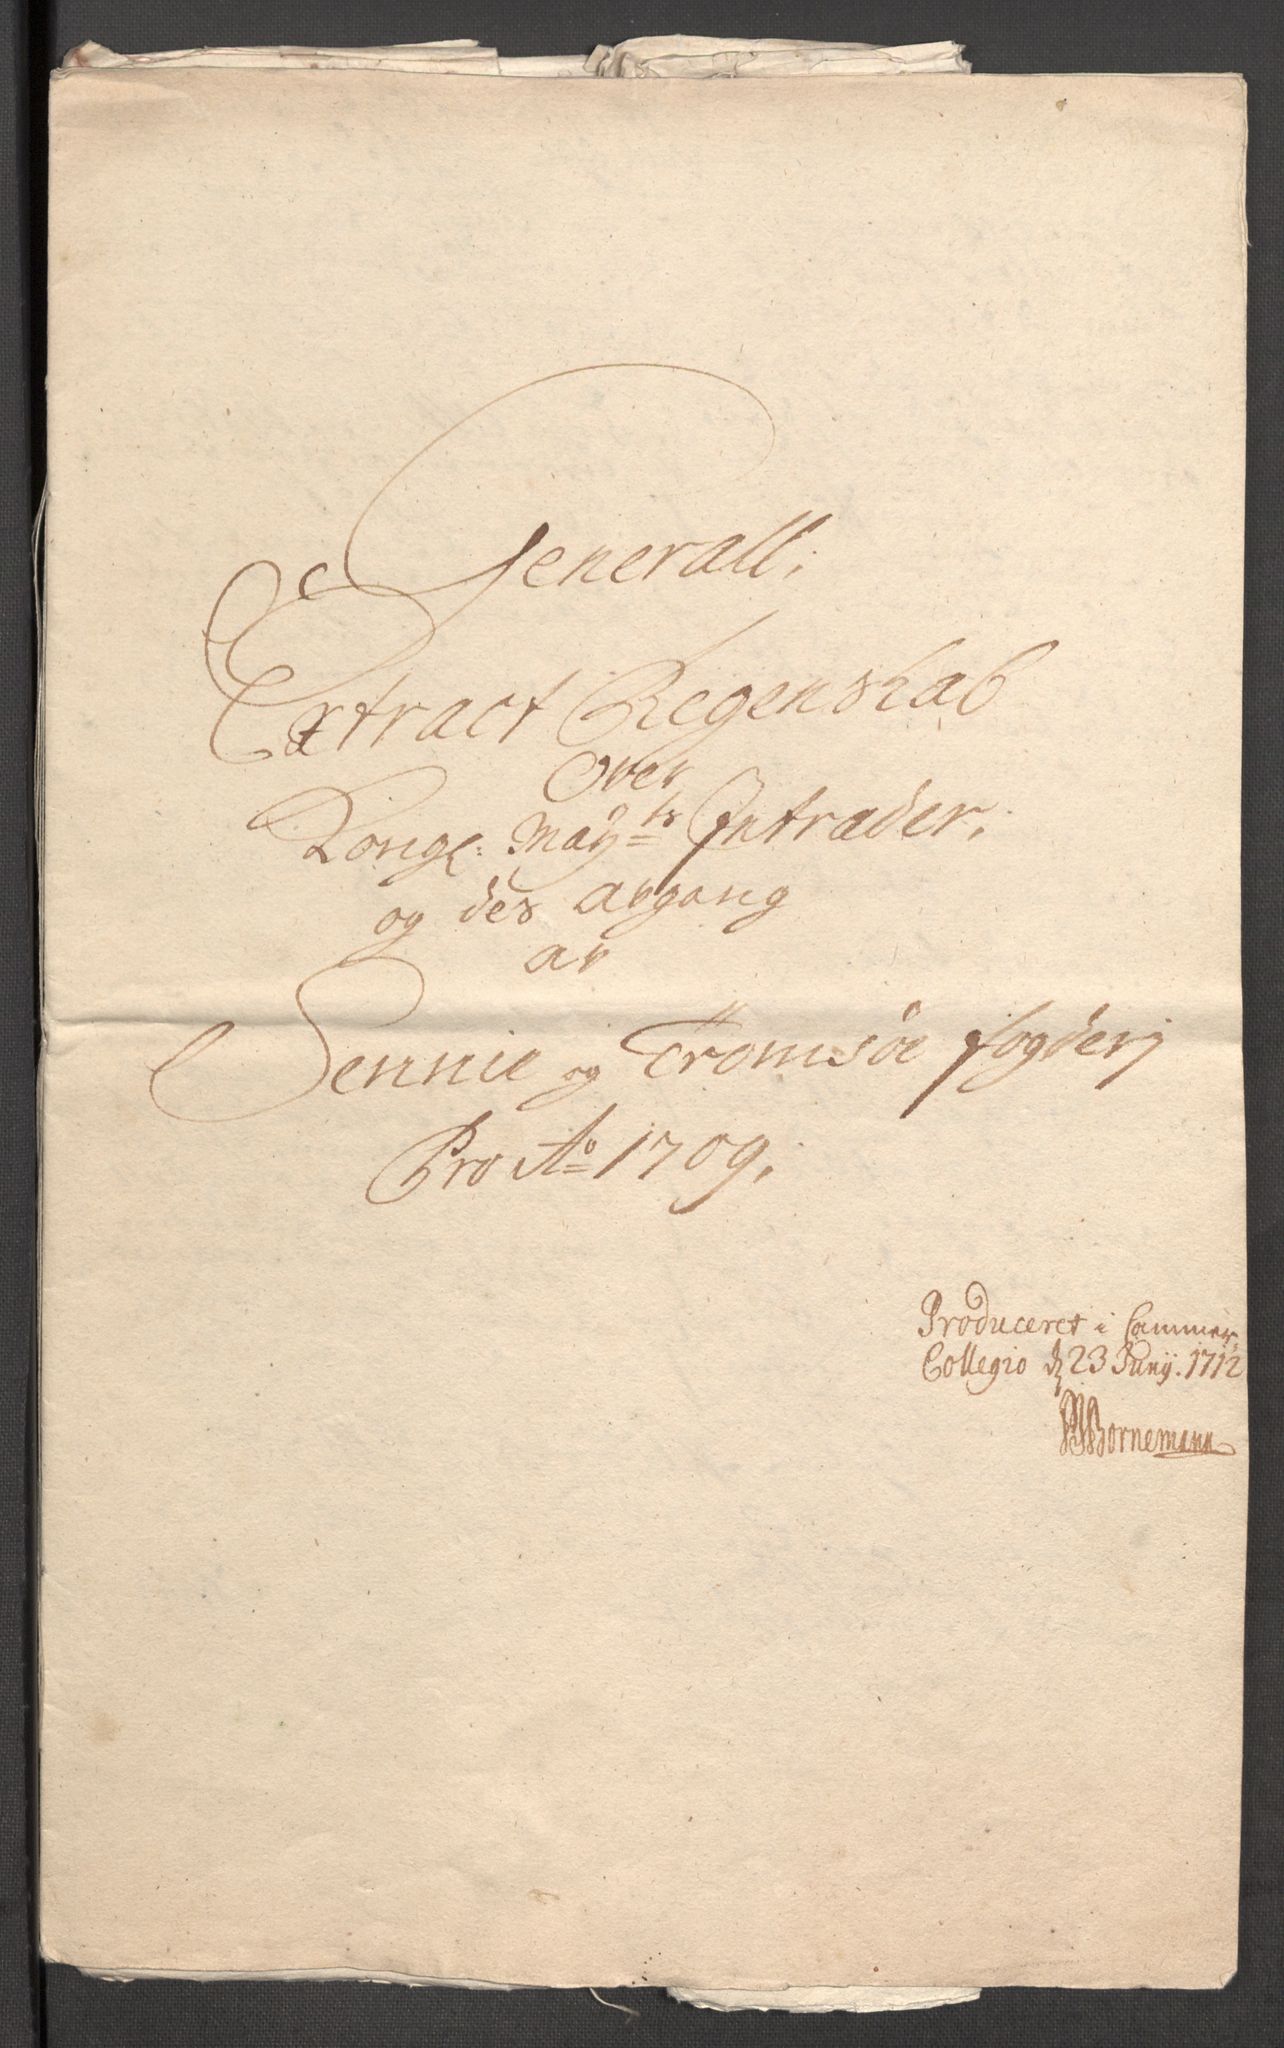 Generall:
Extract Regenskab
Over
Kongl: May:ts Intrader,
og des Afgang
af
Sennie og Tromsöe fogderj
Pro Ao 1709,
Produceret i Cammer,
Collegio d 23 Junij. 1712
Bornemann